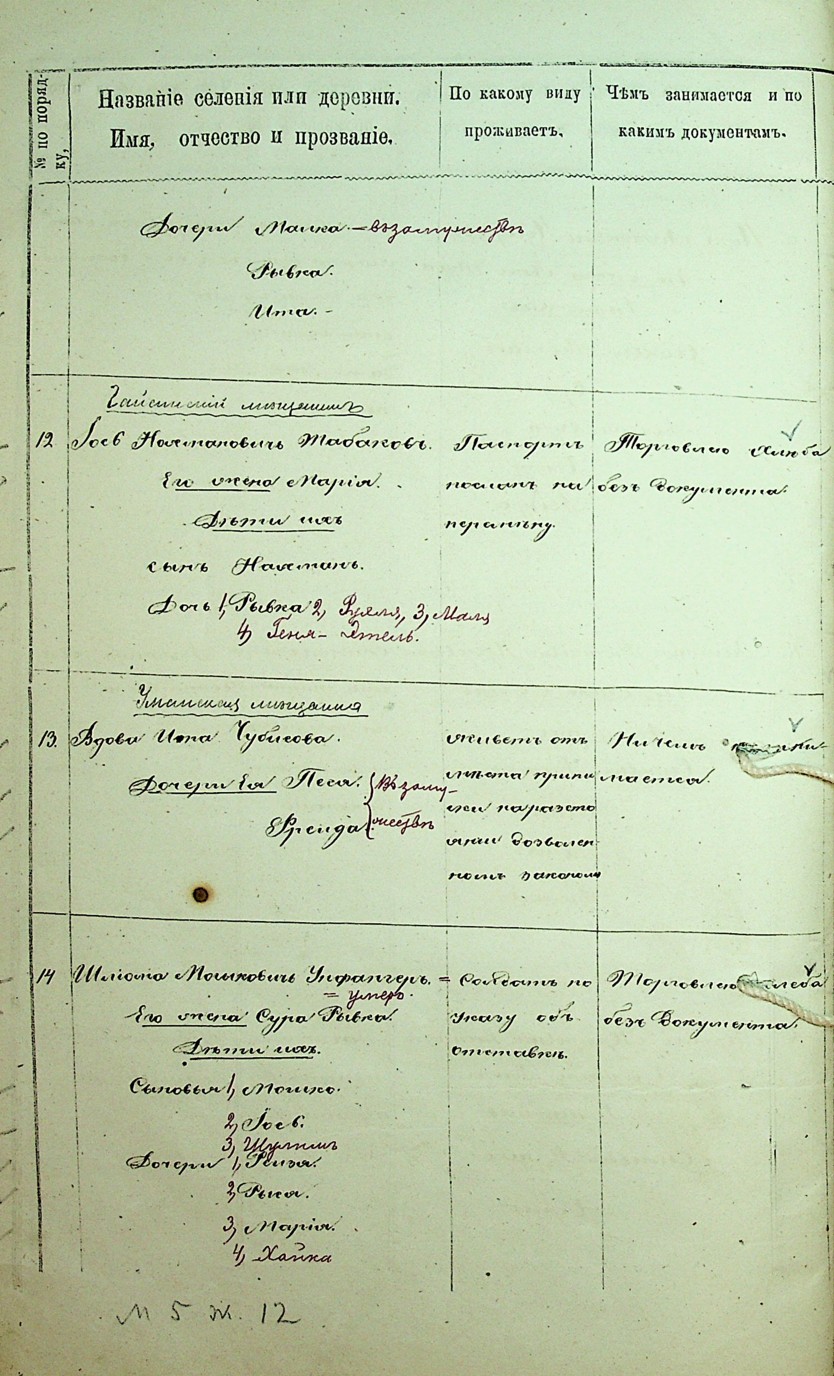 № по порядку,
Названіе селенія или деревни.
Имя, отчество и прозваніе.
По какому виду
проживаетъ.
Чѣмъ занимается и по
какимъ документамъ.
Дочери Малка – взамужествѣ
Рывка.
Ита. –
Гайсинскій мѣщанинъ
12 Іосъ Нахмановичъ Табаковъ.
Его жена Марія.
Дѣти ихъ
сынъ Нахманъ.
Дочь 1, Рывка 2, Рухля, 3, Маля
4) Геня – Этель.
Паспортъ
посланъ на
перемѣну.
Торговлею хлѣба
безъ документа.
Уманская мѣщанка
13. Вдова Ита Чубисова.
Дочери Ея Песя. } Взаму-
Фрейда } жествѣ
живетъ отъ
мѣста
на разсто
яніи дозволен
номъ закономъ
Ничемъ не зани
мается.
14 Шліома Мошковичъ Унфангеръ. =
= умеръ.
Его жена Сура Рывка.
Дѣти ихъ.
Сыновья 1, Мошко.
2, Іосъ.
3, Шулимъ
Дочери 1, Рейзя.
2, Рыся.
3, Марія.
4, Хайка
Солдатъ по
указу объ
отставкѣ.
Торговлею хлеба
безъ документа.
М 5 Ж. 12